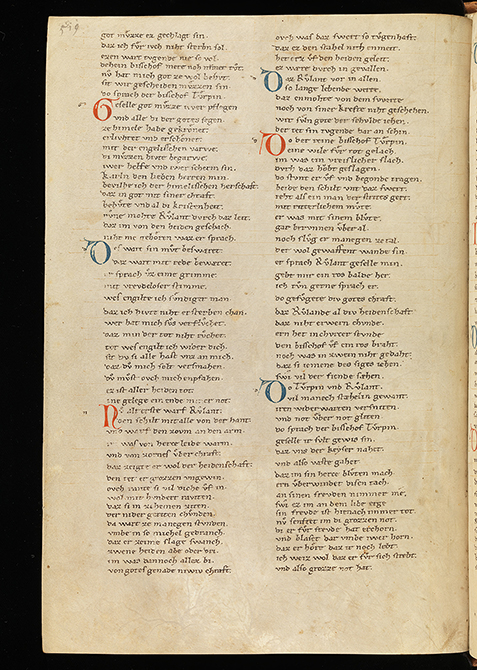 got mvͦzze er geclagt sin.
daz ich fvͤr ivch niht sterbn sol.
ezen wart tvgende nie so vol.
dehein bischof mere noch ritter
nv hat mich got ze wol behvt.
sit wir gescheiden mvzzen sin
do sprach der bischof Tvrpin.
Geselle got mvzze iwer pflegen
vnd alle di der gotes segen
ze himele habe gekronet:
erlivhtet vnd erschonet:
mit der engelischen
di mvzzen hivte
iwer helfe vnd iwer scherm sin.
Karln den lieben herren min.
bevilhe ich der himelischen herschaft
daz in got mit siner chraft.
behvte vnd al di kristenheit.
mohte Rvlant dvrch daz leit.
daz im von den heiden geschach.
niht me gehoren waz er sprach.
Des wart sin mvt beswaret:
daz wart mit rede bewaret:
er sprach vz eine grimme.
mit vrevdeloser stimme.
wes engilte ich svndiger man
daz ich hivte niht ersterben chan.
wer hat mich svs verflvchet.
daz min der tot niht rvchet.
wes engilt ich wider dich.
ist dv si alle hast vur an mich.
daz dv mich solt versmahen.
dv mvst ovch mich enpfahen
ez ist aller heiden tot:
gelege ein ende miner not:
Nv alrerste warf Rvlant:
den schilt mit alle von der hant:
vnd warf den zovm an den arm.
er was von herze leide warm.
vnd von zorne vber chraft:
daz zeigte er wol der heidenschaft:
den tet er grozzen vngewin.
ovch rante si vil diche vf in.
wol mit hvndert raviten.
daz si in ze beinen riten.
der nider geriten chvnden.
da wart ze manegen stvnden.
vmbe in so michel gedranch.
daz er zeime slage swanch.
zwene heiden abe oder dri.
im was dannoch allez bi.
von gotes genade niwiv chraft.
ovch was daz swert so tvgenhaft:
daz er den stahel niht enmeit.
het erz vf den heiden geleit:
ez wære dvrch in gevallen.
Daz Rvlant vor in allen.
so lange lebende werte.
daz enmohte von dem swerte
noch von siner krefte niht geschehen.
wir svn gote der schvlde iehen.
der tet sin tvgende dar an schin.
Do der reine bischof Tvrpin.
eine wile fvr tot gelach.
im was ein vreislicher slach.
dvrch daz hobet geslagen.
do stvnt er vf vnd begonde tragen.
beide den schilt vnt daz swert.
reht als ein man der strites gert:
mit ritterlichem mvte.
er was mit sinem blvte.
gar brvnnen vber al.
noch slvg er manegen ze tal.
der wol gewaffent wande sin.
er sprach Rvlant geselle min.
gebt mir ein ros balde her.
ich tvn gerne sprach er.
do gefvgete div gotes chraft.
daz Rvlande al div heidenschaft
daz niht erwern chvnde.
ern het in churcer stvnde
den bischof vf ein ros braht:
noch was in zwein niht gedaht:
daz si iemene des siges iehen.
swi vil der fiende sæhen.
Do Tvrpin vnd Rvlant.
vil manoch stæhelin gewant.
iren widerwarten versniten.
vnd not vber not gliten
do sprach der bischof Tvrpin.
geselle ir svlt gewis sin.
daz vns der keyser nahet.
vnd also vaste gahet
daz im sin herze blvten mach.
ern vberwindet disen tach.
an sinen frevden nimmer me.
swi ez im an dem libe erge
sin frevde ist hienach immer tot.
nv senftet im di grozzen not.
di er fvr frevde hat erchorn.
vnd blaset dar vmbe iwer horn.
daz er hore daz ir noch lebt.
ich weiz wol daz er fvr sich strebt.
vnd also grozze not hat.